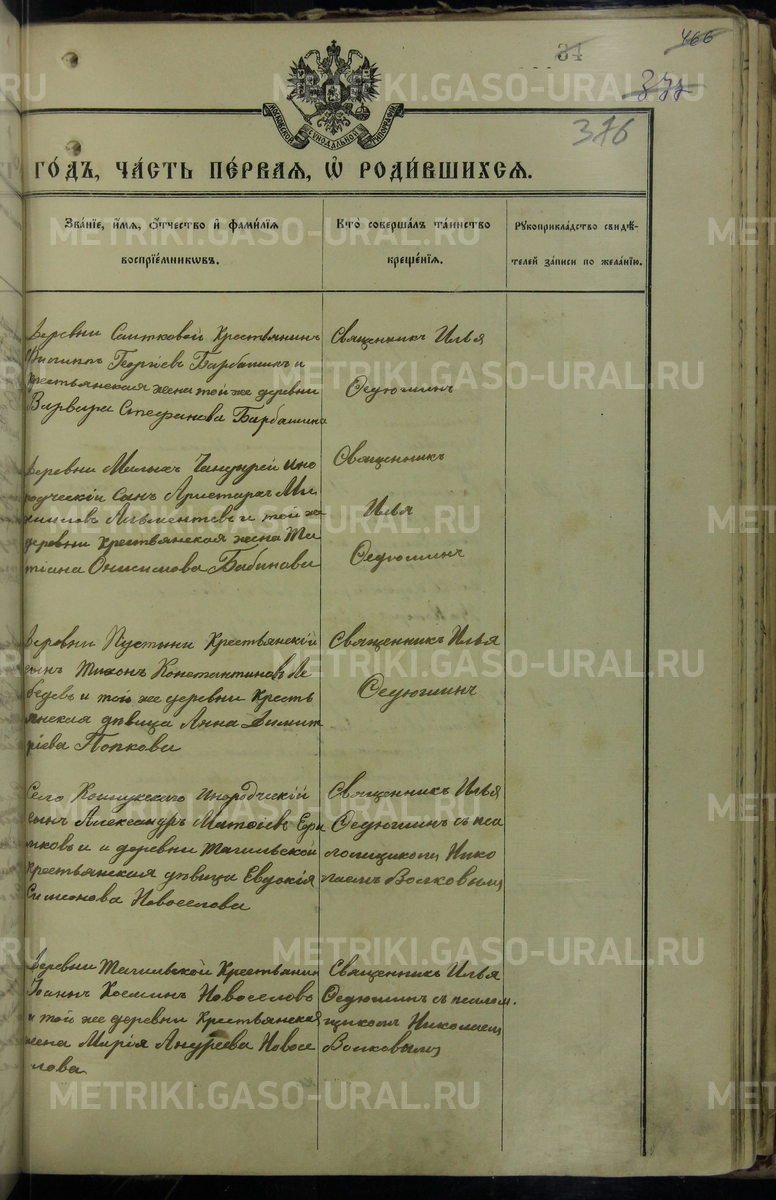 34
466
377
376
МОСКОВСКОЙ СѴНОДАЛЬНОЙ ТИПОГРАФІИ
ГО́ДЪ, ЧА́СТЬ ПЕ́РВАЯ, Ѡ҆ РОДИ́ВШИХСѦ.
Зва́нїе, и҆́мѧ, ѻ҆́тчество и҆ фами́лїѧ
воспрїе́мникѡвъ.
Кто̀ соверша́лъ та́инство
креще́нїѧ.
Рꙋкоприкла́дство свидѣ́-
телей за́писи по жела́нїю.
Деревни Саитковой Крестьянинъ
Филиппъ Георгіевъ Барбашинъ и
крестьянская жена той же деревни
Варвара Стефанова Барбашина
Священникъ Илья
Федюшинъ
деревни Малыхъ ино
родческій Сынъ Аристархъ Ми
хаиловъ и той же
деревни крестьянская жена Та
тіана Онисимова Бабинова
Священникъ
Илья
Федюшинъ
деревни Пустыни Крестьянскій
сынъ Тихонъ Константиновъ Ле
бедевъ и той же деревни Кресть
янская дѣвица Анна Димит
ріева Попкова
Священникъ Илья
Федюшинъ
Село Кошукского Инородческій
сынъ Александръ Матѳіевъ
и деревни Тагильской
Крестьянская дѣвица Евдокія
Симеонова Новоселова
Священникъ Илья
Федюшинъ съ пса
ломщикомъ Нико
лаемъ Волковымъ
Деревни Тагильской Крестьянинъ
Іоаннъ Косминъ Новоселовъ
и той же деревни Крестьянская
жена Марія Андреева Новосе
лова
Священникъ Илья
Федюшинъ съ псалом.
щикомъ Николаемъ
Волковымъ
METRIKI.GASO-URAL.RU